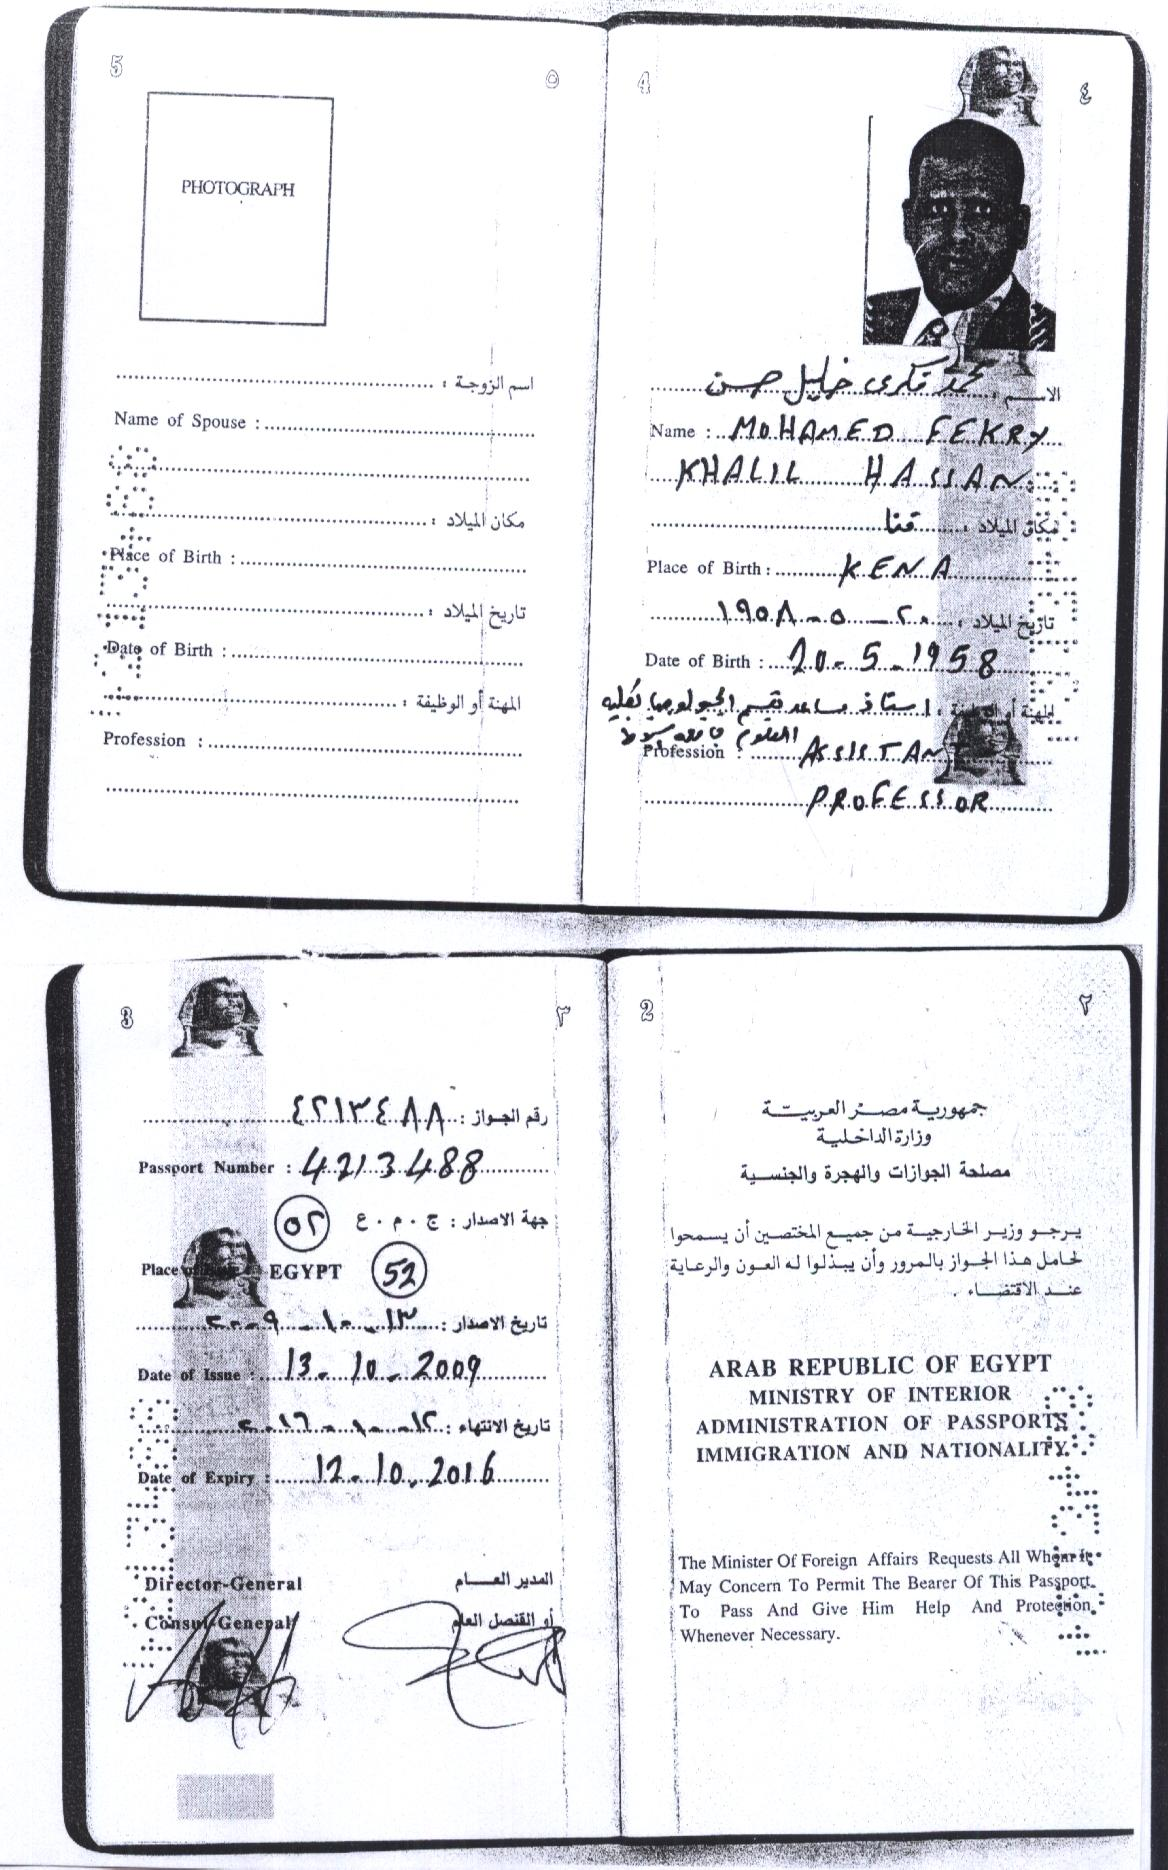 5
٥
PHOTOGRAPH
اسم الزوجة :
Name of Spouse :
مكان الميلاد :
Place of Birth :
تاريخ الميلاد :
Date of Birth :
المهنة أو الوظيفة :
Profession :
4
٤
الاسم : محمد فكرى خليل حسن
Name : MOHAMED FEKRY
KHALIL HASSAN
مكان الميلاد : قنا
Place of Birth : KENA
تاريخ الميلاد : ٢٠ - ٥ - ١٩٥٨
Date of Birth : 20 - 5 - 1958
المهنة أو الوظيفة : استاذ مساعد بقسم الجيولوجيا بكليه
العلوم جامعه
Profession : ASSISTANT
PROFESSOR
3
٣
رقم الجواز : ٤٢١٣٤٨٨
Passport Number : 4213488
جهة الاصدار : ج . م . ع ٥٢
Place of EGYPT 52
تاريخ الاصدار : ١٣ - ١٠ - ٢٠٠٩
Date of Issue : 13 - 10 - 2009
تاريخ الانتهاء : ١٢ - ١٠ - ٢٠١٦
Date of Expiry : 12 - 10 - 2016
Director-General المدير العـــام
Consul-General أو القنصل العام
2
٢
جمهورية مصر العربية
وزارة الداخلية
مصلحة الجوازات والهجرة والجنسية
يرجو وزير الخارجية من جميع المختصين أن يسمحوا
لحامل هذا الجواز بالمرور وأن يبذلوا له العون والرعاية
عند الاقتضاء .
ARAB REPUBLIC OF EGYPT
MINISTRY OF INTERIOR
ADMINISTRATION OF PASSPORTS
IMMIGRATION AND NATIONALITY.
The Minister Of Foreign Affairs Requests All Whom It
May Concern To Permit The Bearer Of This Passport
To Pass And Give Him Help And Protection
Whenever Necessary.